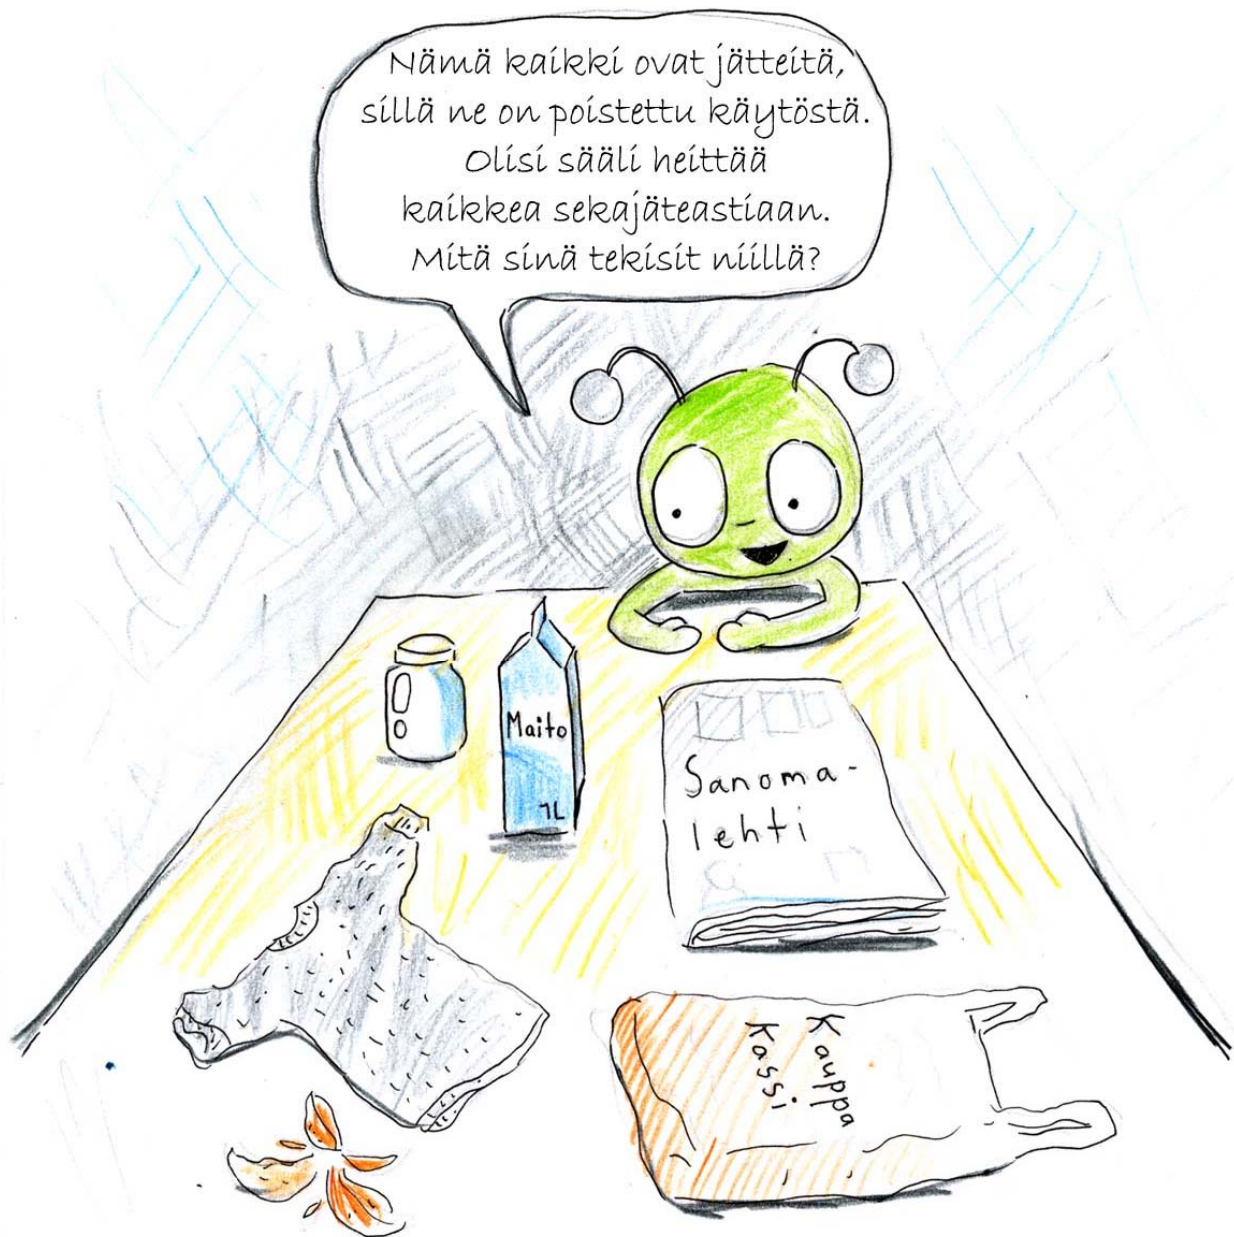 Nämä kaikki ovat jätteitä,
sillä ne on poistettu käytöstä.
Olisi sääli heittää
kaikkea sekajäteastiaan.
Mitä sinä tekisit niillä?
Maito
1L
Sanoma-
lehti
Kauppa
Kassi